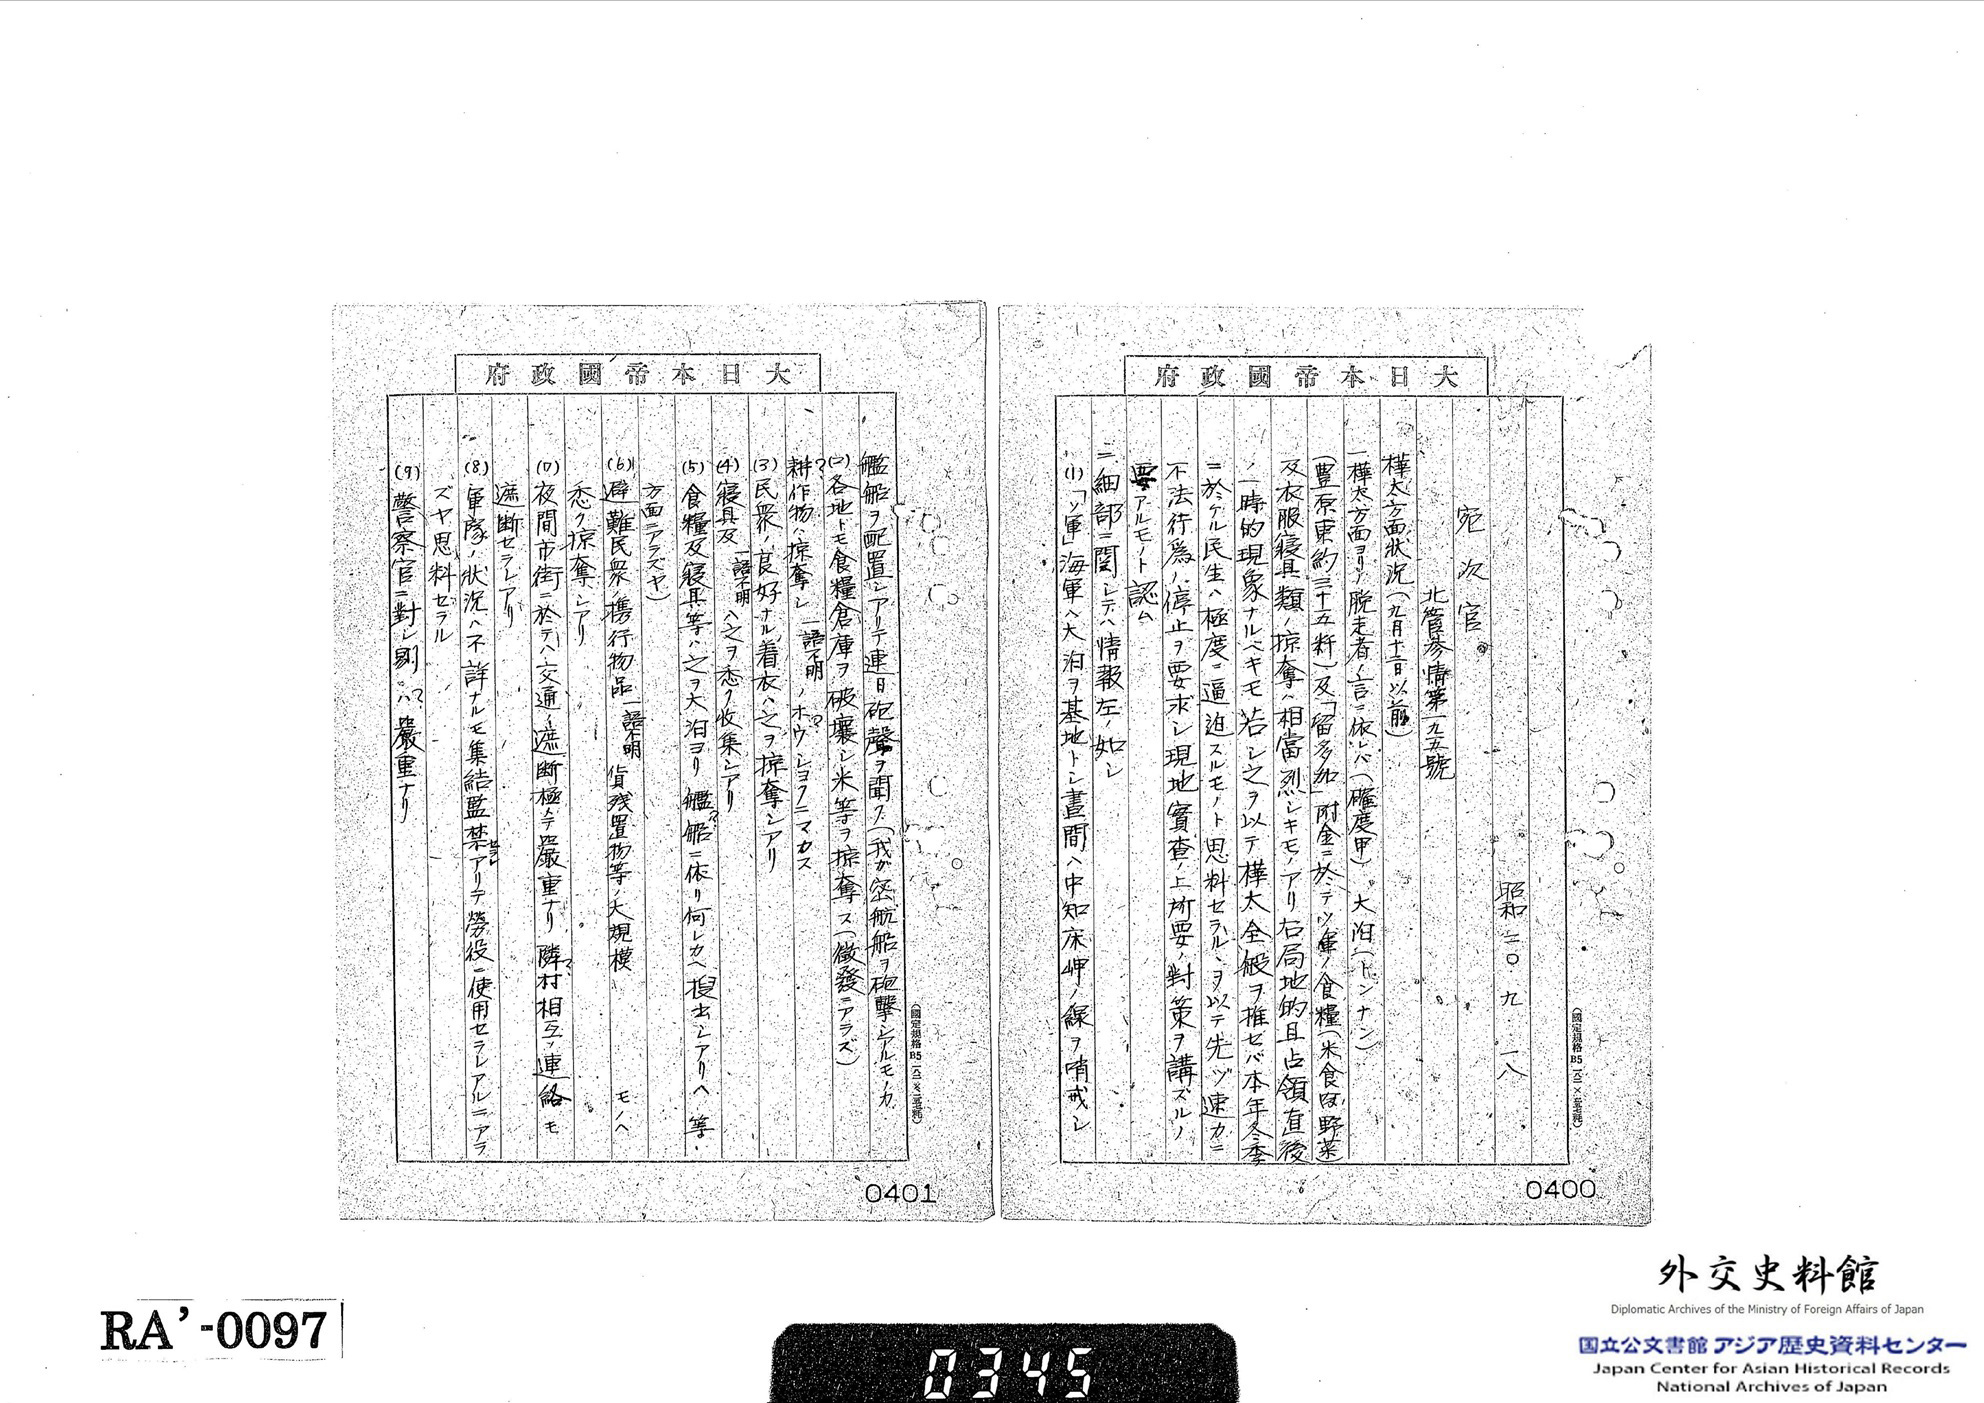 大日本帝國政府
昭和二〇、九、一八
宛次官
北管参情第一九五號
樺太方面狀況(九月十一日以前)
一樺太方面ヨリノ脱走者ノ言ニ依レバ(確度甲)。大泊(トンナン)
(豊原東約三十五粁)及「留多加」附金ニ於テソ軍ノ食糧(米食及野菜)
及衣服寝具類ノ掠奪ハ相當烈シキモノアリ右局地的且占領直後
ノ一時的現象ナルベキモ若シ之ヲ以テ樺太全般ヲ推セバ本年冬季
ニ於ケル民生ハ極度ニ逼迫スルモノト思料セラルヽヲ以テ先ヅ速カニ
不法行爲ノ停止ヲ要求シ現地實査ノ上所要ノ對策ヲ講ズルノ
要アルモノト認ム
二、細部ニ関シテハ情報左ノ如シ
(1)「ソ軍」海軍ハ大泊ヲ基地トシ晝間ハ中知床岬ノ線ヲ哨戒シ
(國定規格B5
0400
大日本帝國政府
艦船ヲ配置シアリテ連日砲聲ヲ聞ク(我ガ密航船ヲ砲撃シアルモノカ
(二)各地トモ食糧倉庫ヲ破壊シ米等ヲ掠奪ス(徴發ニアラズ)
耕?作物ハ掠奪シ一語不明ノホウ?ショクニマカス
(3)民衆ノ良好ナル着衣ハ之ヲ掠奪シアリ
(4)寝具及一語不明ハ之ヲ悉ク收集シアリ
(5)食糧及寝具等ハ之ヲ大泊ヨリ艦船?ニ依リ何レカヘ搬出シアリヘ等、
方面ニアラズヤ)
(6)避難民衆ノ携行物品一語不明貨残置物等大規模モノヘ
悉ク掠奪シアリ
(7)夜間市街ニ於テハ交通ノ遮断極メテ嚴重ナリ隣?村相互ノ連絡モ
遮断セラレアリ
(8)軍隊ノ狀況ハ不詳ナルモ集結監禁セラレアリテ勞役ニ使用セラレアルニアラ
ズヤ思料セラル
(9)警察官ニ對シ別?ハ嚴重ナリ
(國定規格B5
0401
RA'-0097
0345
外交史料館
Diplomatic Archives of the Ministry of Foreign Affairs of Japan
国立公文書館 アジア歴史資料センター
Japan Center for Asian Historical Records
National Archives of Japan